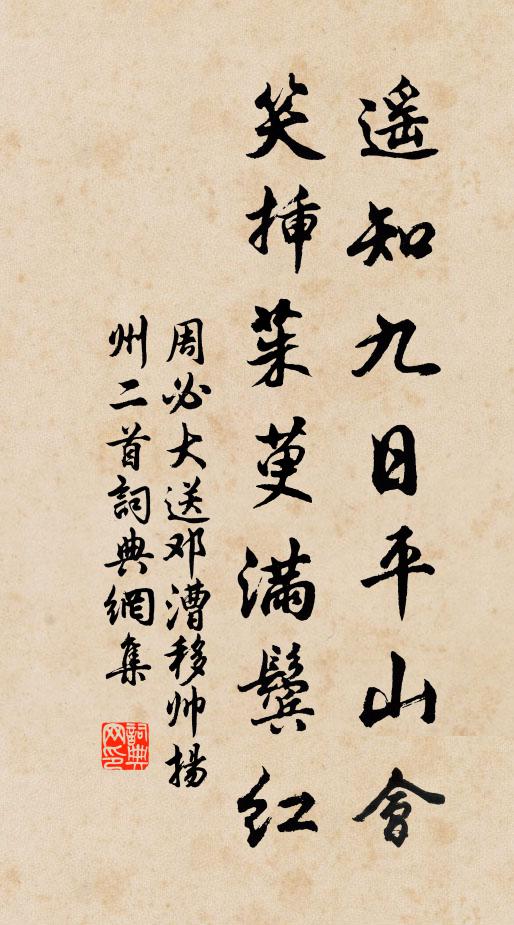 遥知九日平山會
笑挿茱萸満鬓红
周必大送邓漕移帅揚
州二首詞典網集
詞典网印